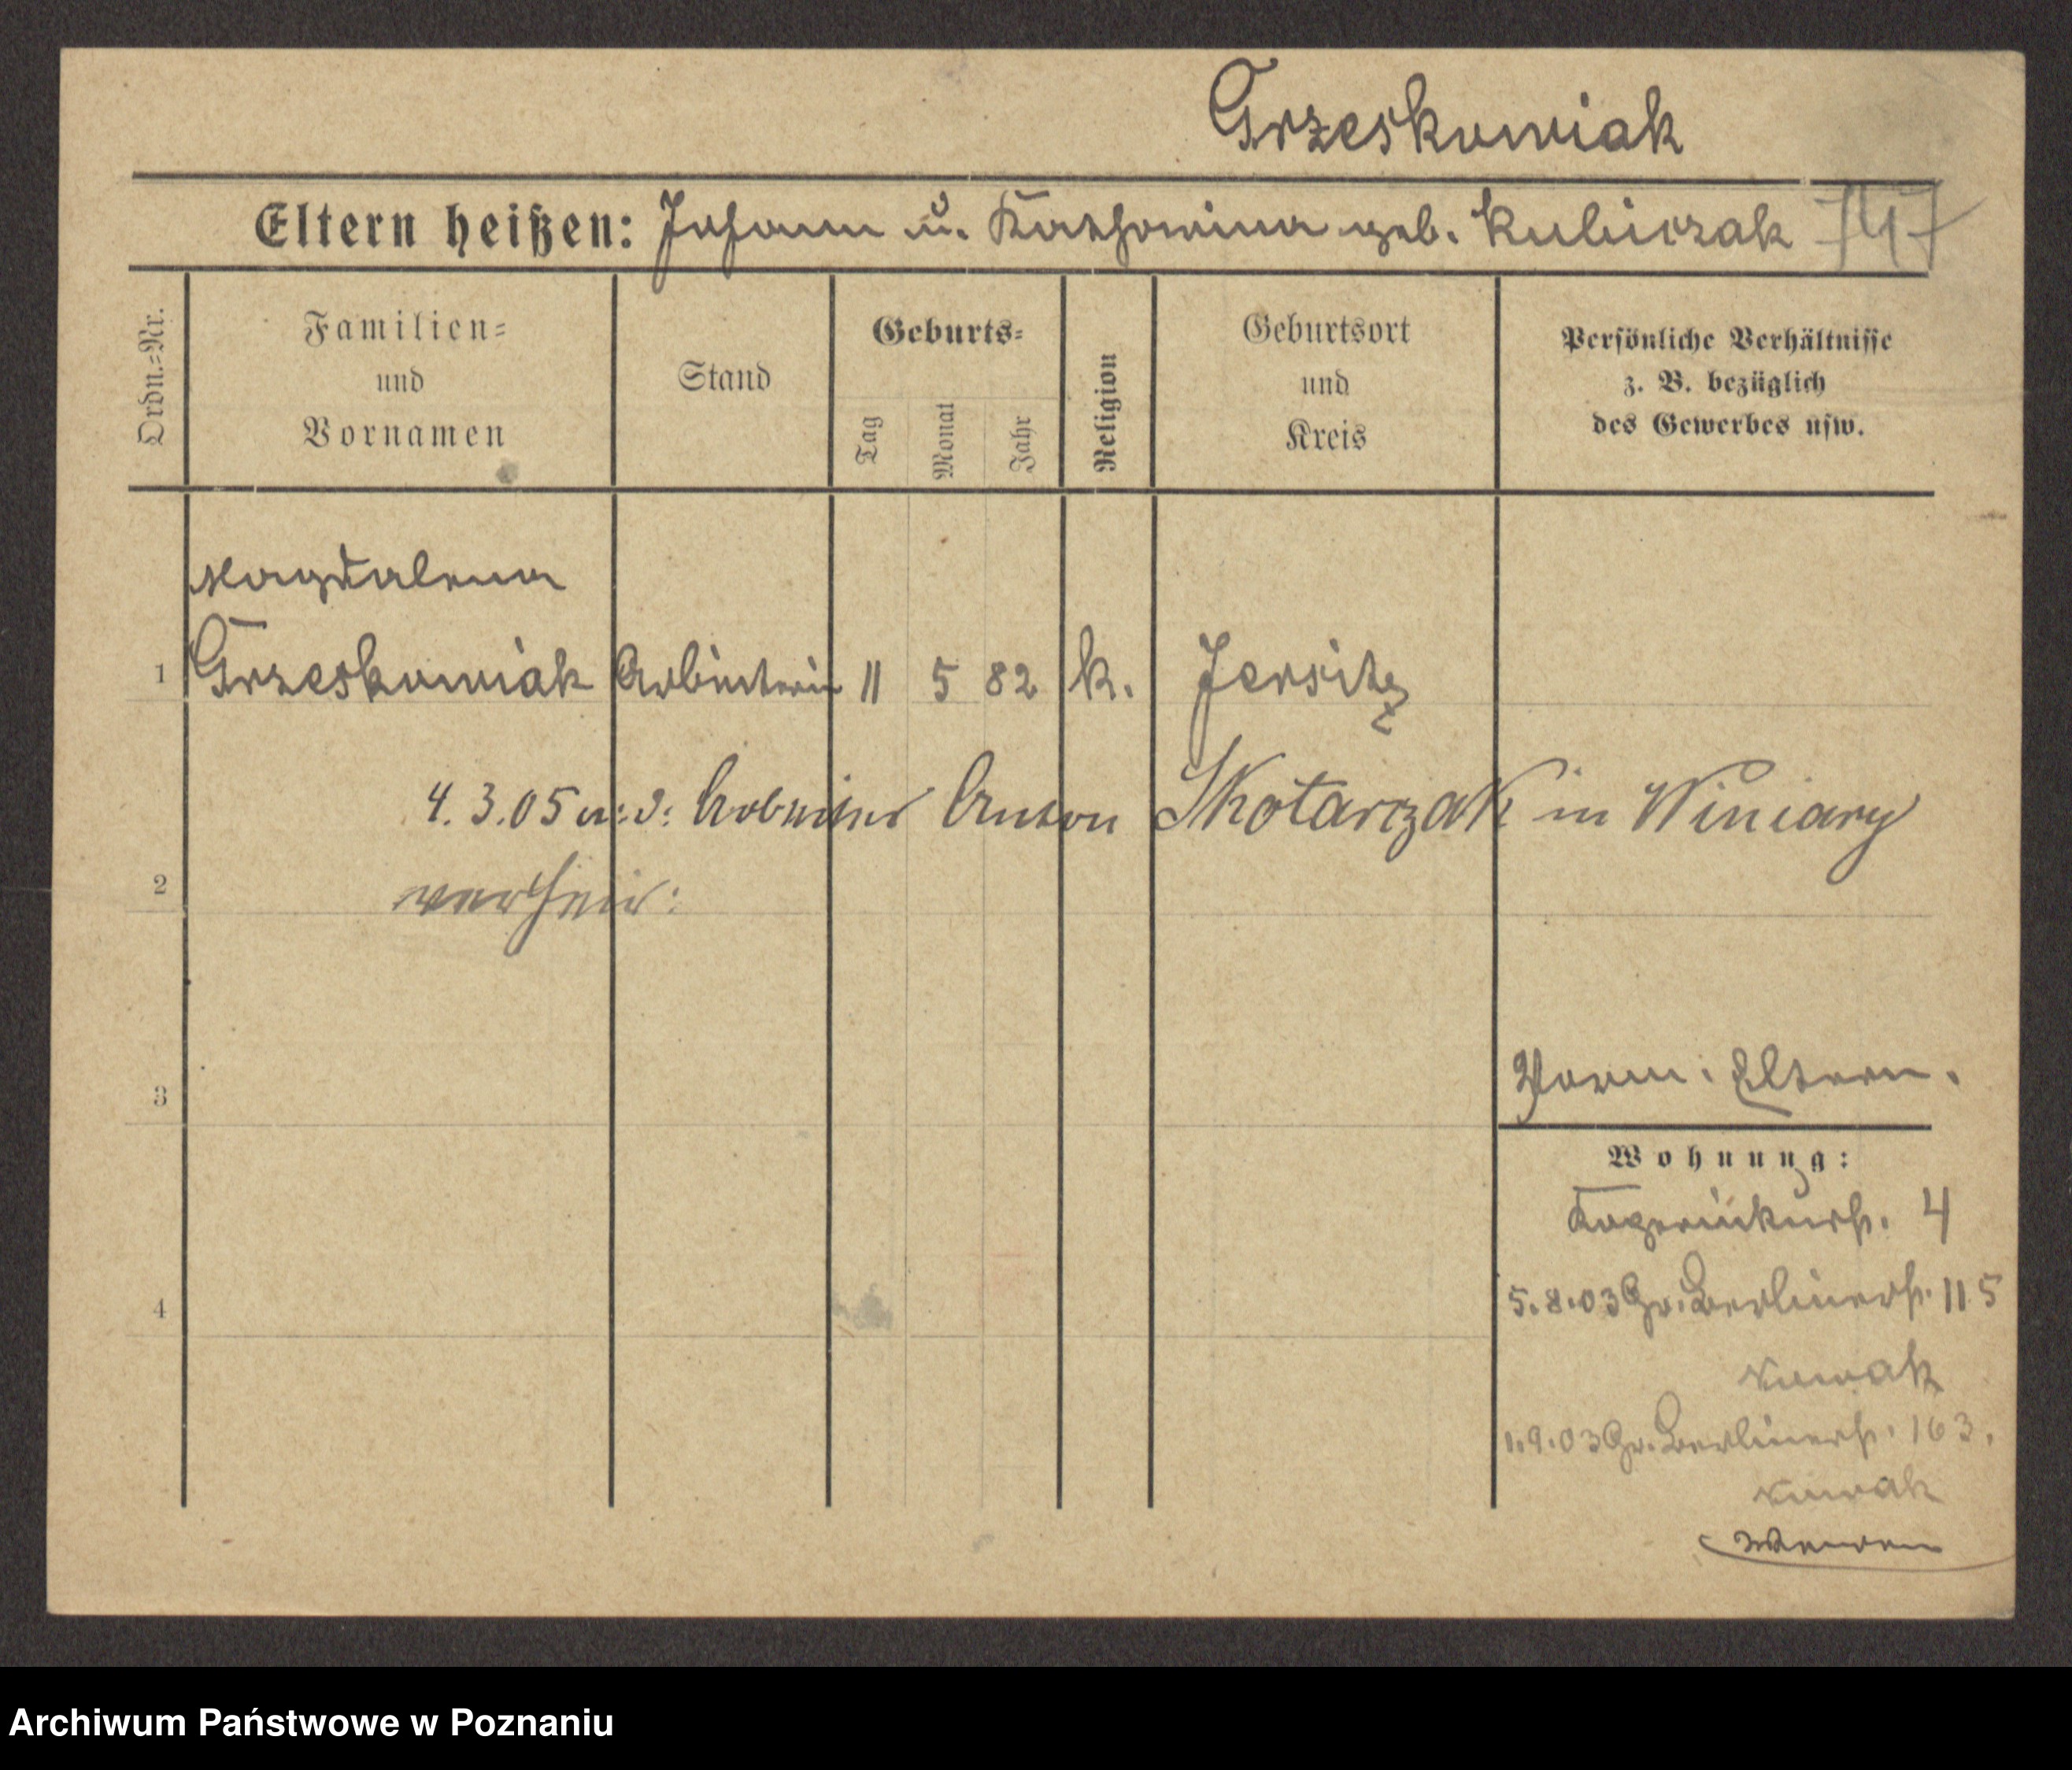 Grzeskowiak
Eltern heißen: Johann u. Katharina geb. Kubiczak 747
Ordn.=Nr.
Familien=
und
Vornamen
Stand
Geburts=
Tag
Monat
Jahr
Religion
Geburtsort
und
Kreis
Persönliche Verhältnisse
z. B. bezüglich
des Gewerbes usw.
Magdalena
1 Grzeskowiak Arbeiterin 11 5 82 k. Jersitz
4. 3. 05 m: d: Arbeiter Anton Skotarczak in Winiary
2 verheir:
3 Eltern.
Wohnung:
4
4 5.8.03 Gr. Berlinerstr. 115
Nowak
1.9.03 Gr. Berlinerstr. 163.
Nowak
Archiwum Państwowe w Poznaniu